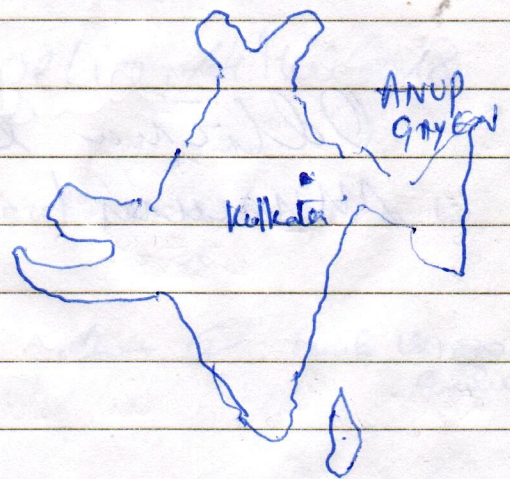 ANUP
GAYEN
Kolkata